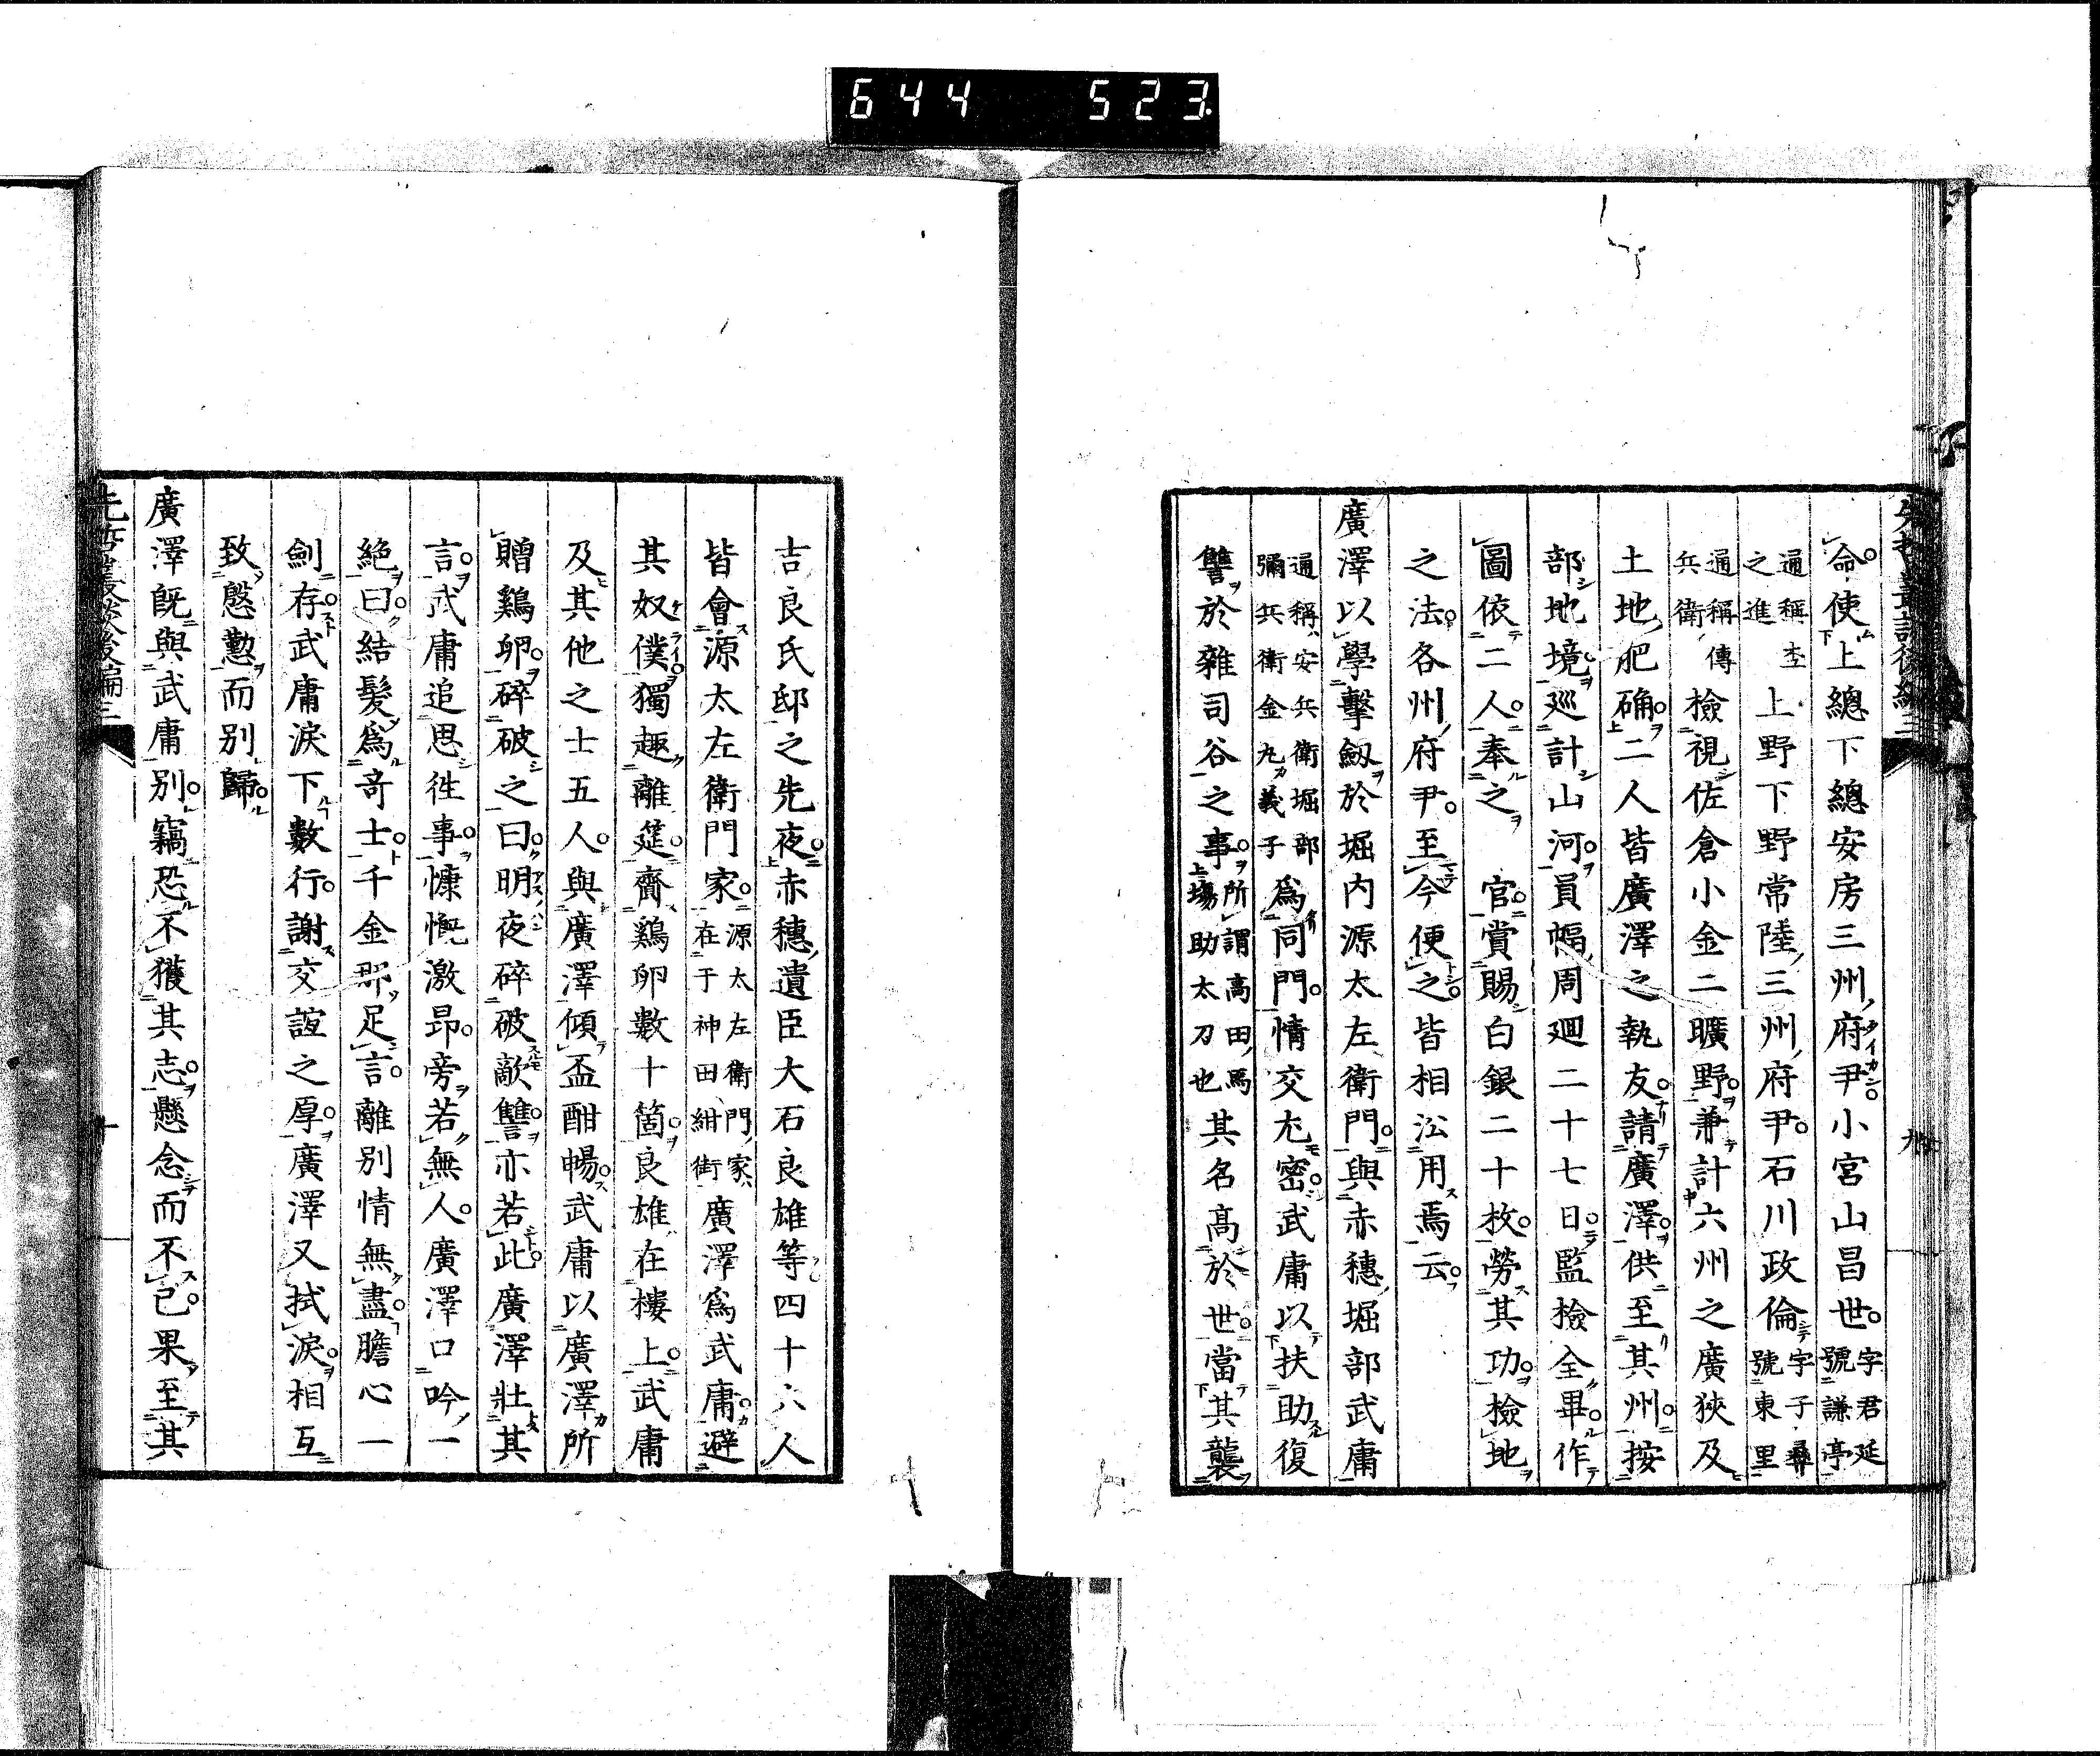 644 523
先哲叢談後編三
九
命使上總下總安房三州府尹小宮山昌世字君延號謙亭
通稱杢之進上野下野常陸三州府尹石川政倫字子尋號東里
通稱傳兵衛檢視佐倉小金二曠野兼計六州之廣狹及
土地肥确二人皆廣澤之執友請廣澤供至其州按
部地境廵計山河員幅周廻二十七日監檢全畢作
圖依二人奉之 官賞賜白銀二十枚勞其功檢地
之法各州府尹至今便之皆相㳂用焉云
廣澤以學擊劒於堀内源太左衛門與赤穗堀部武庸
通稱安兵衛堀部彌兵衛金丸義子爲同門情交尤密武庸以扶助復
讐於雜司谷之事所謂高田馬場助太刀也其名高於世當其襲
吉良氏邸之先夜赤穗遺臣大石良雄等四十六人
皆會源太左衛門家源太左衛門家在于神田紺街廣澤爲武庸避
其奴僕獨趣離筵齎鷄卵數十箇良雄在樓上武庸
及其他之士五人與廣澤傾盃酣暢武庸以廣澤所
贈鷄卵碎破之曰明夜碎破敵讐亦若此廣澤壯其
言武庸追思徃事慷慨激昂旁若無人廣澤口吟一
絶曰結髮爲奇士千金那足言離別情無盡膽心一
劍存武庸淚下數行謝交誼之厚廣澤又拭淚相互
致慇懃而別歸
廣澤旣與武庸別竊恐不獲其志懸念而不已果至其
先哲叢談後編三
十